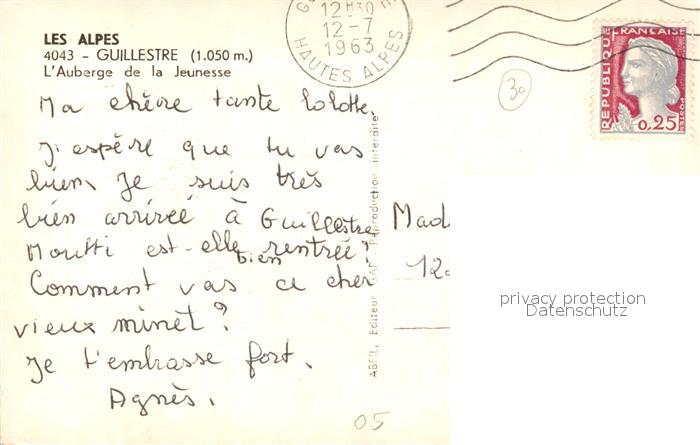 LES ALPES
4043 - GUILLESTRE (1.050 m.)
L'Auberge de la Jeunesse
Ma chère tante Lolotte.
J'espère que tu vas
bien. Je suis très
bien arrivée à Guillestre
Moutti est-elle bien rentrée?
Comment vas ce cher
vieux minet?
Je t'embrasse fort.
Agnès.
05
ABEIL, Editeur GAP Reproduction interdite
12 H30
12-7
1963
HAUTES ALPES
30
REPUBLIQUE FRANÇAISE
POSTES
0,25
Mad
12
privacy protection
Datenschutz